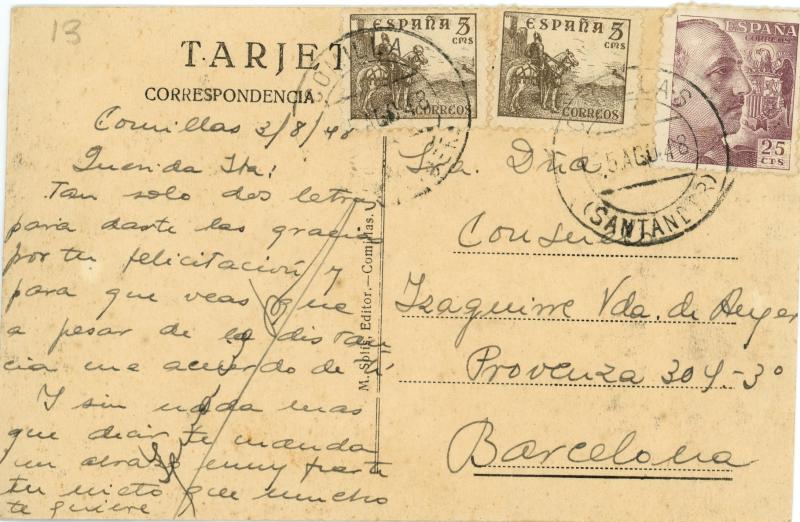 13
TARJET
CORRESPONDENCIA
ESPAÑA 5 cms
CORREOS
ESPAÑA 5 cms
CORREOS
ESPAÑA
CORREOS
25 CTS
5 AGO 48
(SANTANDER)
Comillas 3/8/48
Querida Ita:
Tan solo dos letras
para darte las gracias
por tu felicitación y
para que veas que
a pesar de la distan
cia me acuerdo de ti
Y sin nada mas
que decir te manda
un abrazo muy fuerte
tu nieto que mucho
te quiere
M. Solís, Editor.—Comillas.
Sra. Dña
Consuelo
Izaguirre Vda. de Aeger
Provenza 304-3º
Barcelona